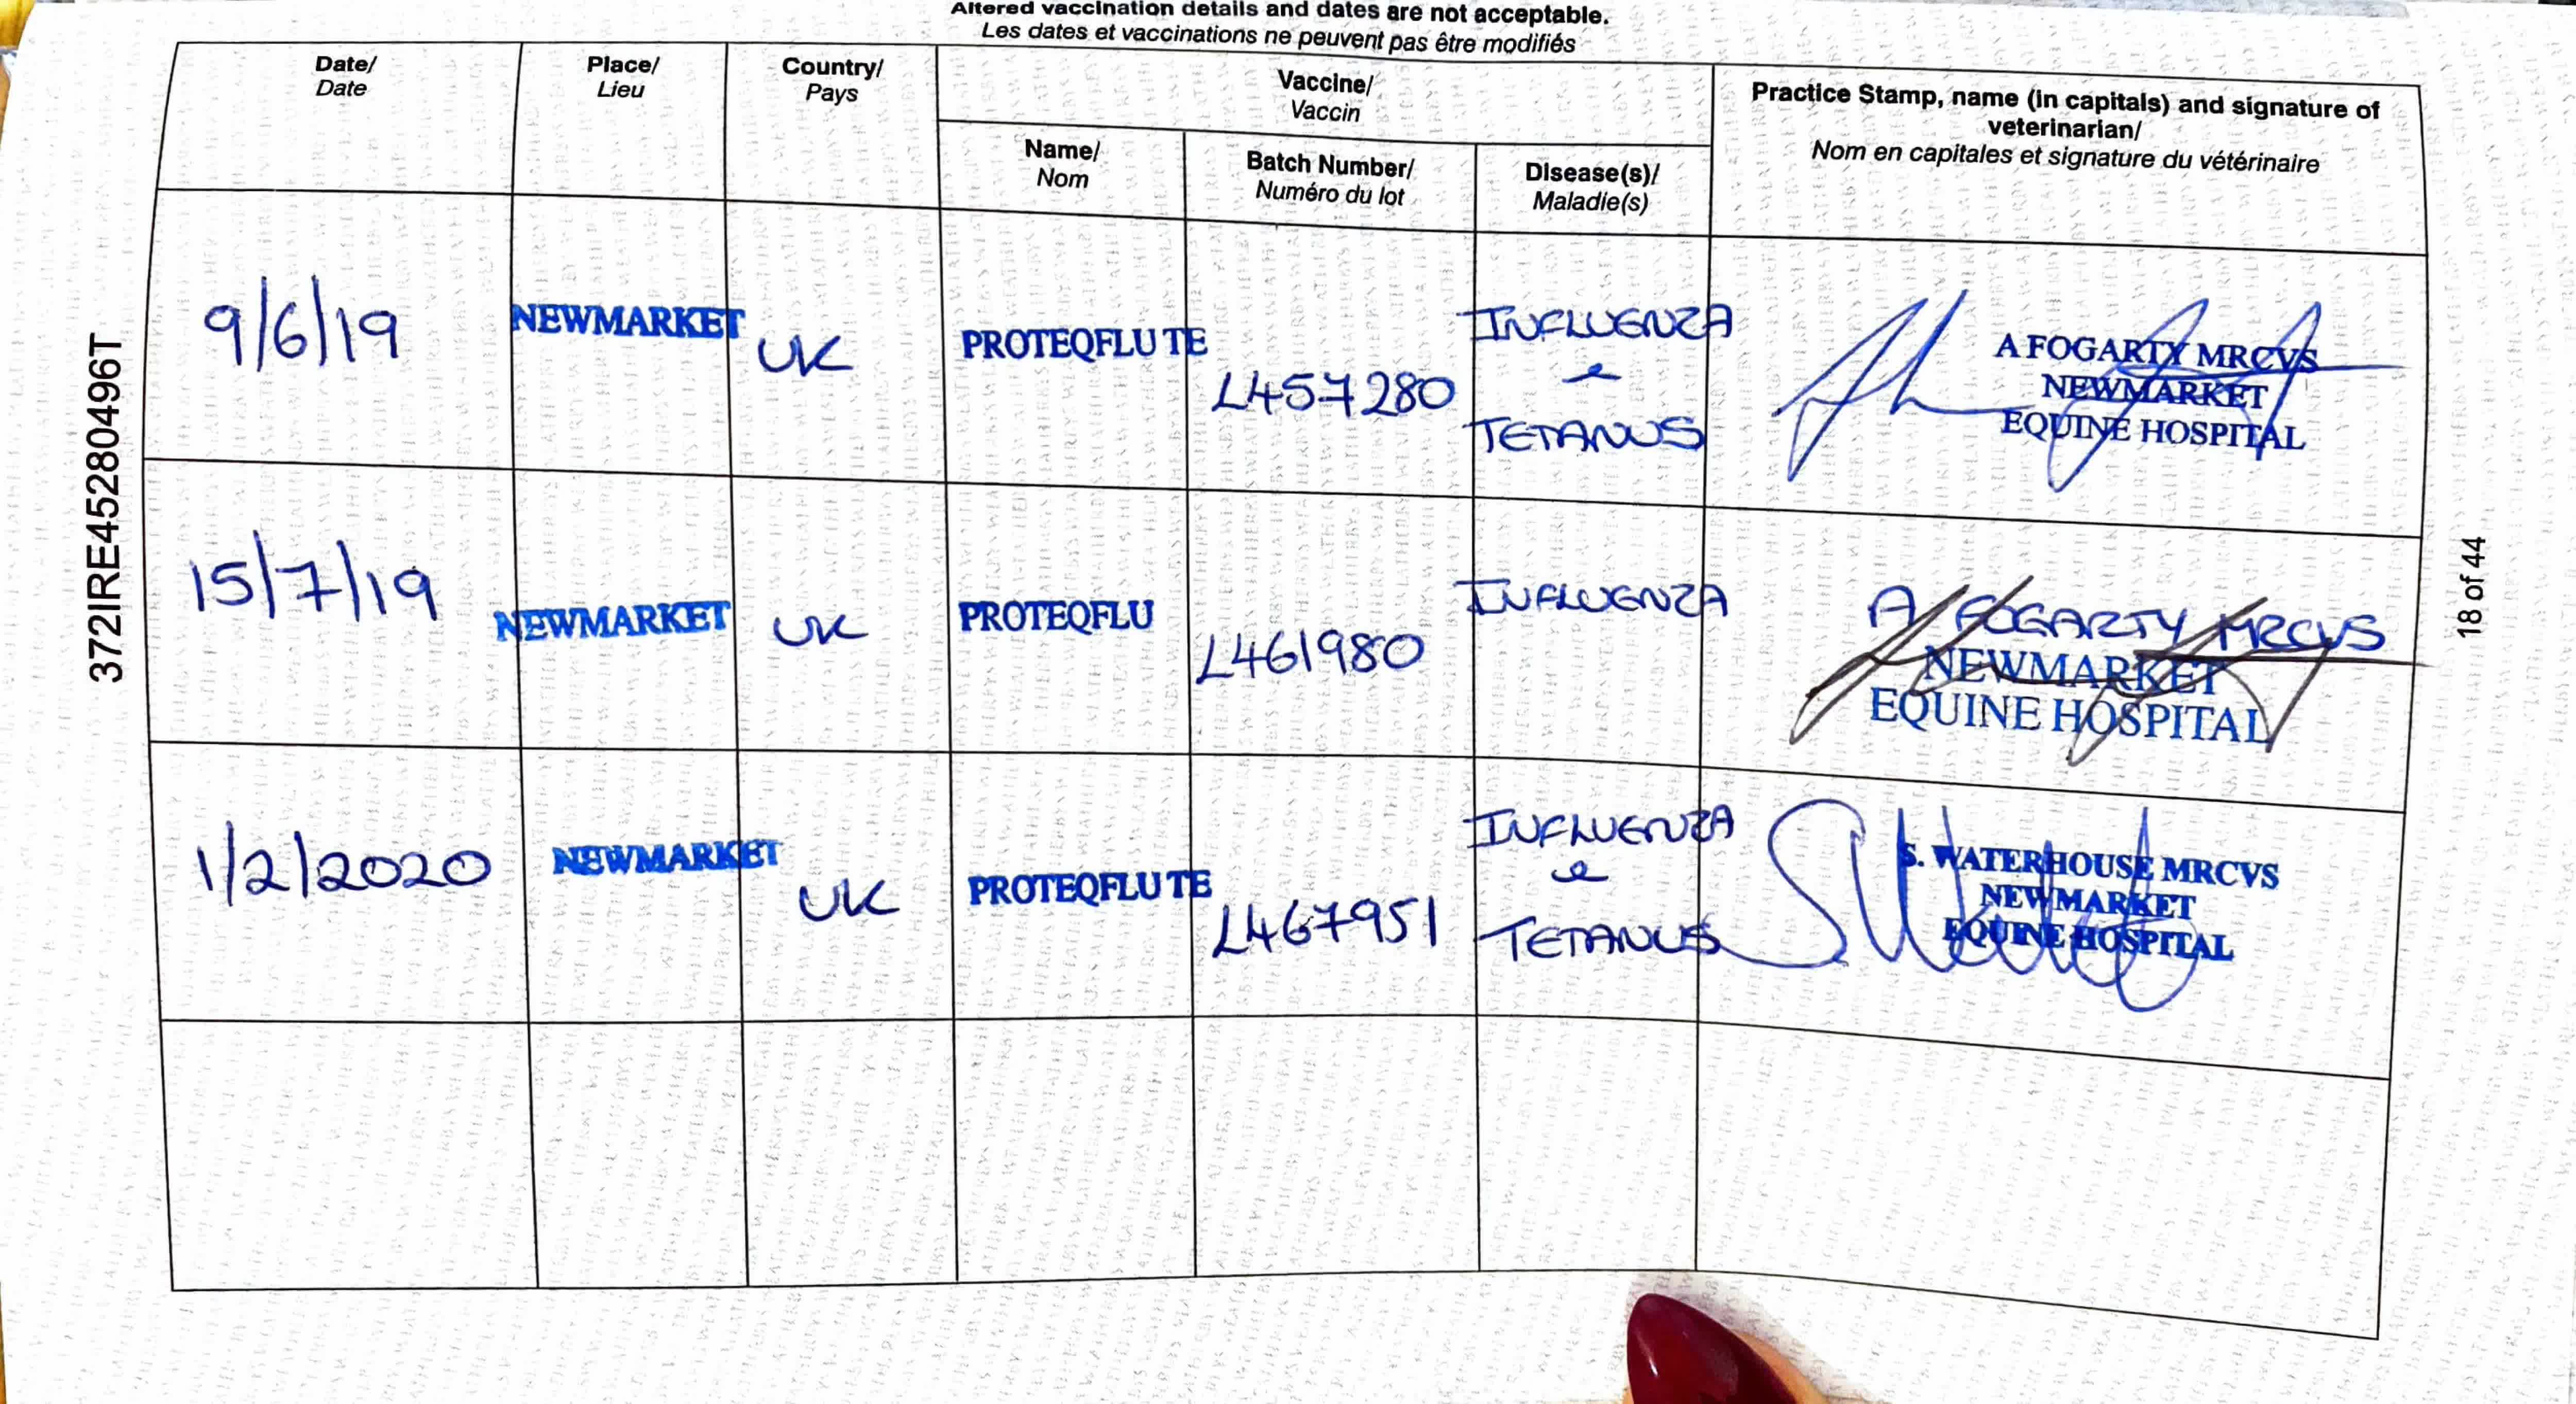 Altered vaccination details and dates are not acceptable.
Les dates et vaccinations ne peuvent pas être modifiés
Date/
Date
Place/
Lieu
Country/
Pays
Vaccine/
Vaccin
Name/
Nom
Batch Number/
Numéro du lot
Disease(s)/
Maladie(s)
Practice Stamp, name (in capitals) and signature of
veterinarian/
Nom en capitales et signature du vétérinaire
9/6/19
NEWMARKET
UK
PROTEQFLU TE
L457280
INFLUENZA
e
TETANUS
A FOGARTY MRCVS
NEWMARKET
EQUINE HOSPITAL
15/7/19
NEWMARKET
UK
PROTEQFLU
L461980
INFLUENZA
A FOGARTY MRCVS
NEWMARKET
EQUINE HOSPITAL
1/2/2020
NEWMARKET
UK
PROTEQFLU TE
L467951
INFLUENZA
e
TETANUS
S. WATERHOUSE MRCVS
NEWMARKET
EQUINE HOSPITAL
372IRE45280496T
18 of 44